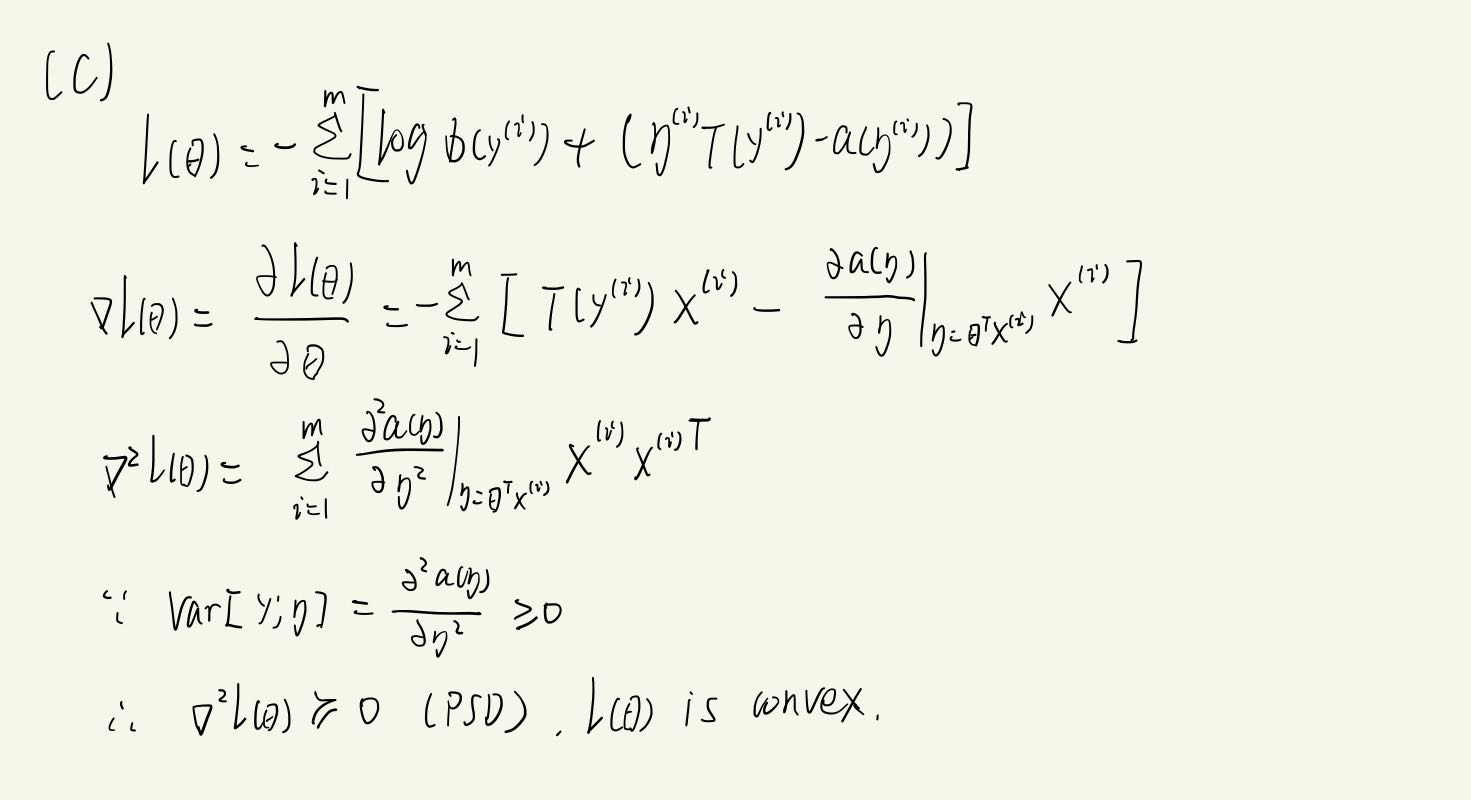 (C)
l(θ) = - ∑_{i=1}^{m} [log b(y^{(i)}) + (η^{(i)} T(y^{(i)}) - a(η^{(i)}))]
∇l(θ) = ∂l(θ)/∂θ = - ∑_{i=1}^{m} [ T(y^{(i)}) x^{(i)} - ∂a(η)/∂η |_{η=θ^T x^{(i)}} x^{(i)} ]
∇²l(θ) = ∑_{i=1}^{m} ∂²a(η)/∂η² |_{η=θ^T x^{(i)}} x^{(i)} x^{(i)T}
∵ Var[Y;η] = ∂²a(η)/∂η² ≥ 0
∴ ∇²l(θ) ≽ 0 (PSD). l(θ) is convex.